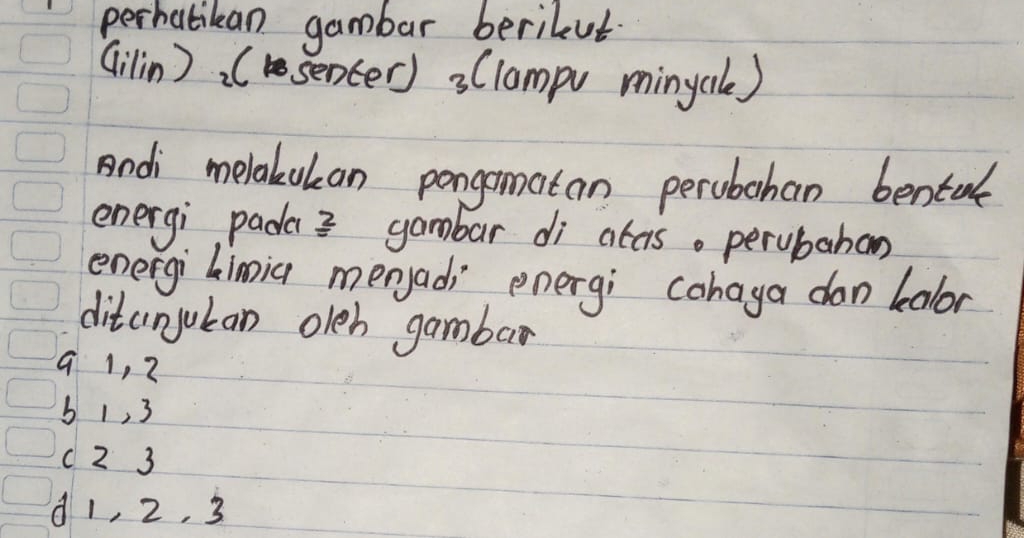 perhatikan gambar berikut.
(lilin) 2(senter) 3(lampu minyak)
Andi melakukan pengamatan perubahan bentuk
energi pada 3 gambar di atas . perubahan
energi kimia menjadi energi cahaya dan kalor
ditunjukan oleh gambar
a 1,2
b 1,3
c 2 3
d 1, 2, 3